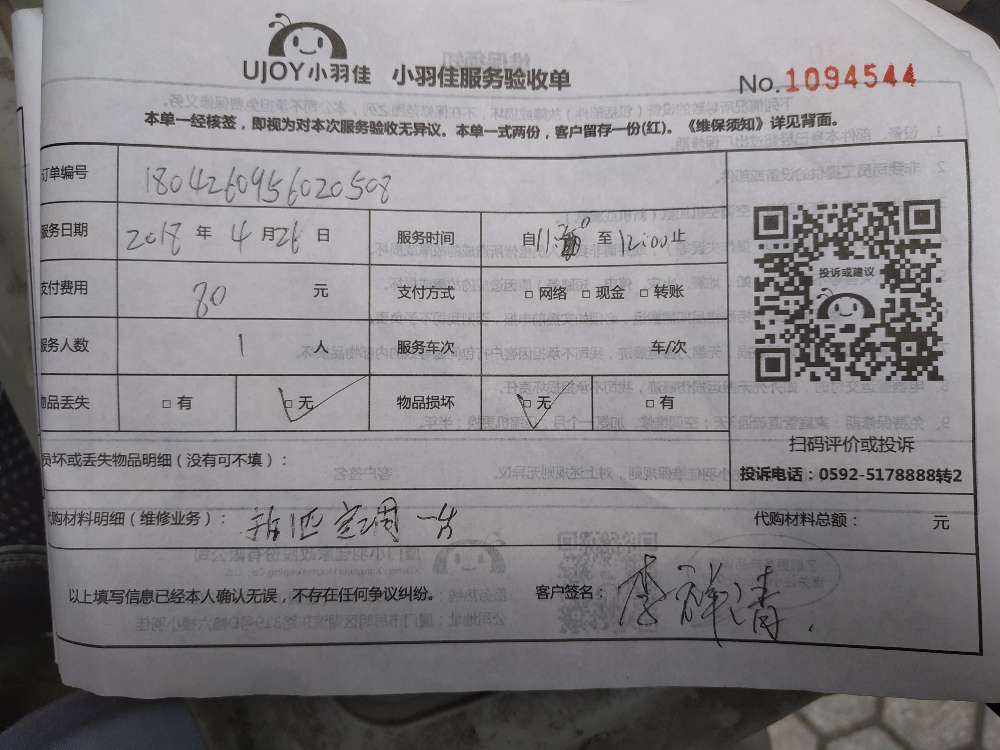 UJOY小羽佳 小羽佳服务验收单 No.1094544
本单一经核签，即视为对本次服务验收无异议。本单一式两份，客户留存一份(红)。《维保须知》详见背面。
订单编号 1804260956020508
服务日期 2018 年 4 月 26 日 服务时间 自11: 至 12:00止
支付费用 80 元 支付方式 □ 网络 □ 现金 □ 转账
服务人数 1 人 服务车次 车/次
物品丢失 □ 有 □ 无 物品损坏 □ 无 □ 有
投诉或建议
扫码评价或投诉
投诉电话：0592-5178888转2
损坏或丢失物品明细（没有可不填）：
代购材料明细（维修业务）： 匹空调一台 代购材料总额： 元
以上填写信息已经本人确认无误，不存在任何争议纠纷。 客户签名： 李祥清